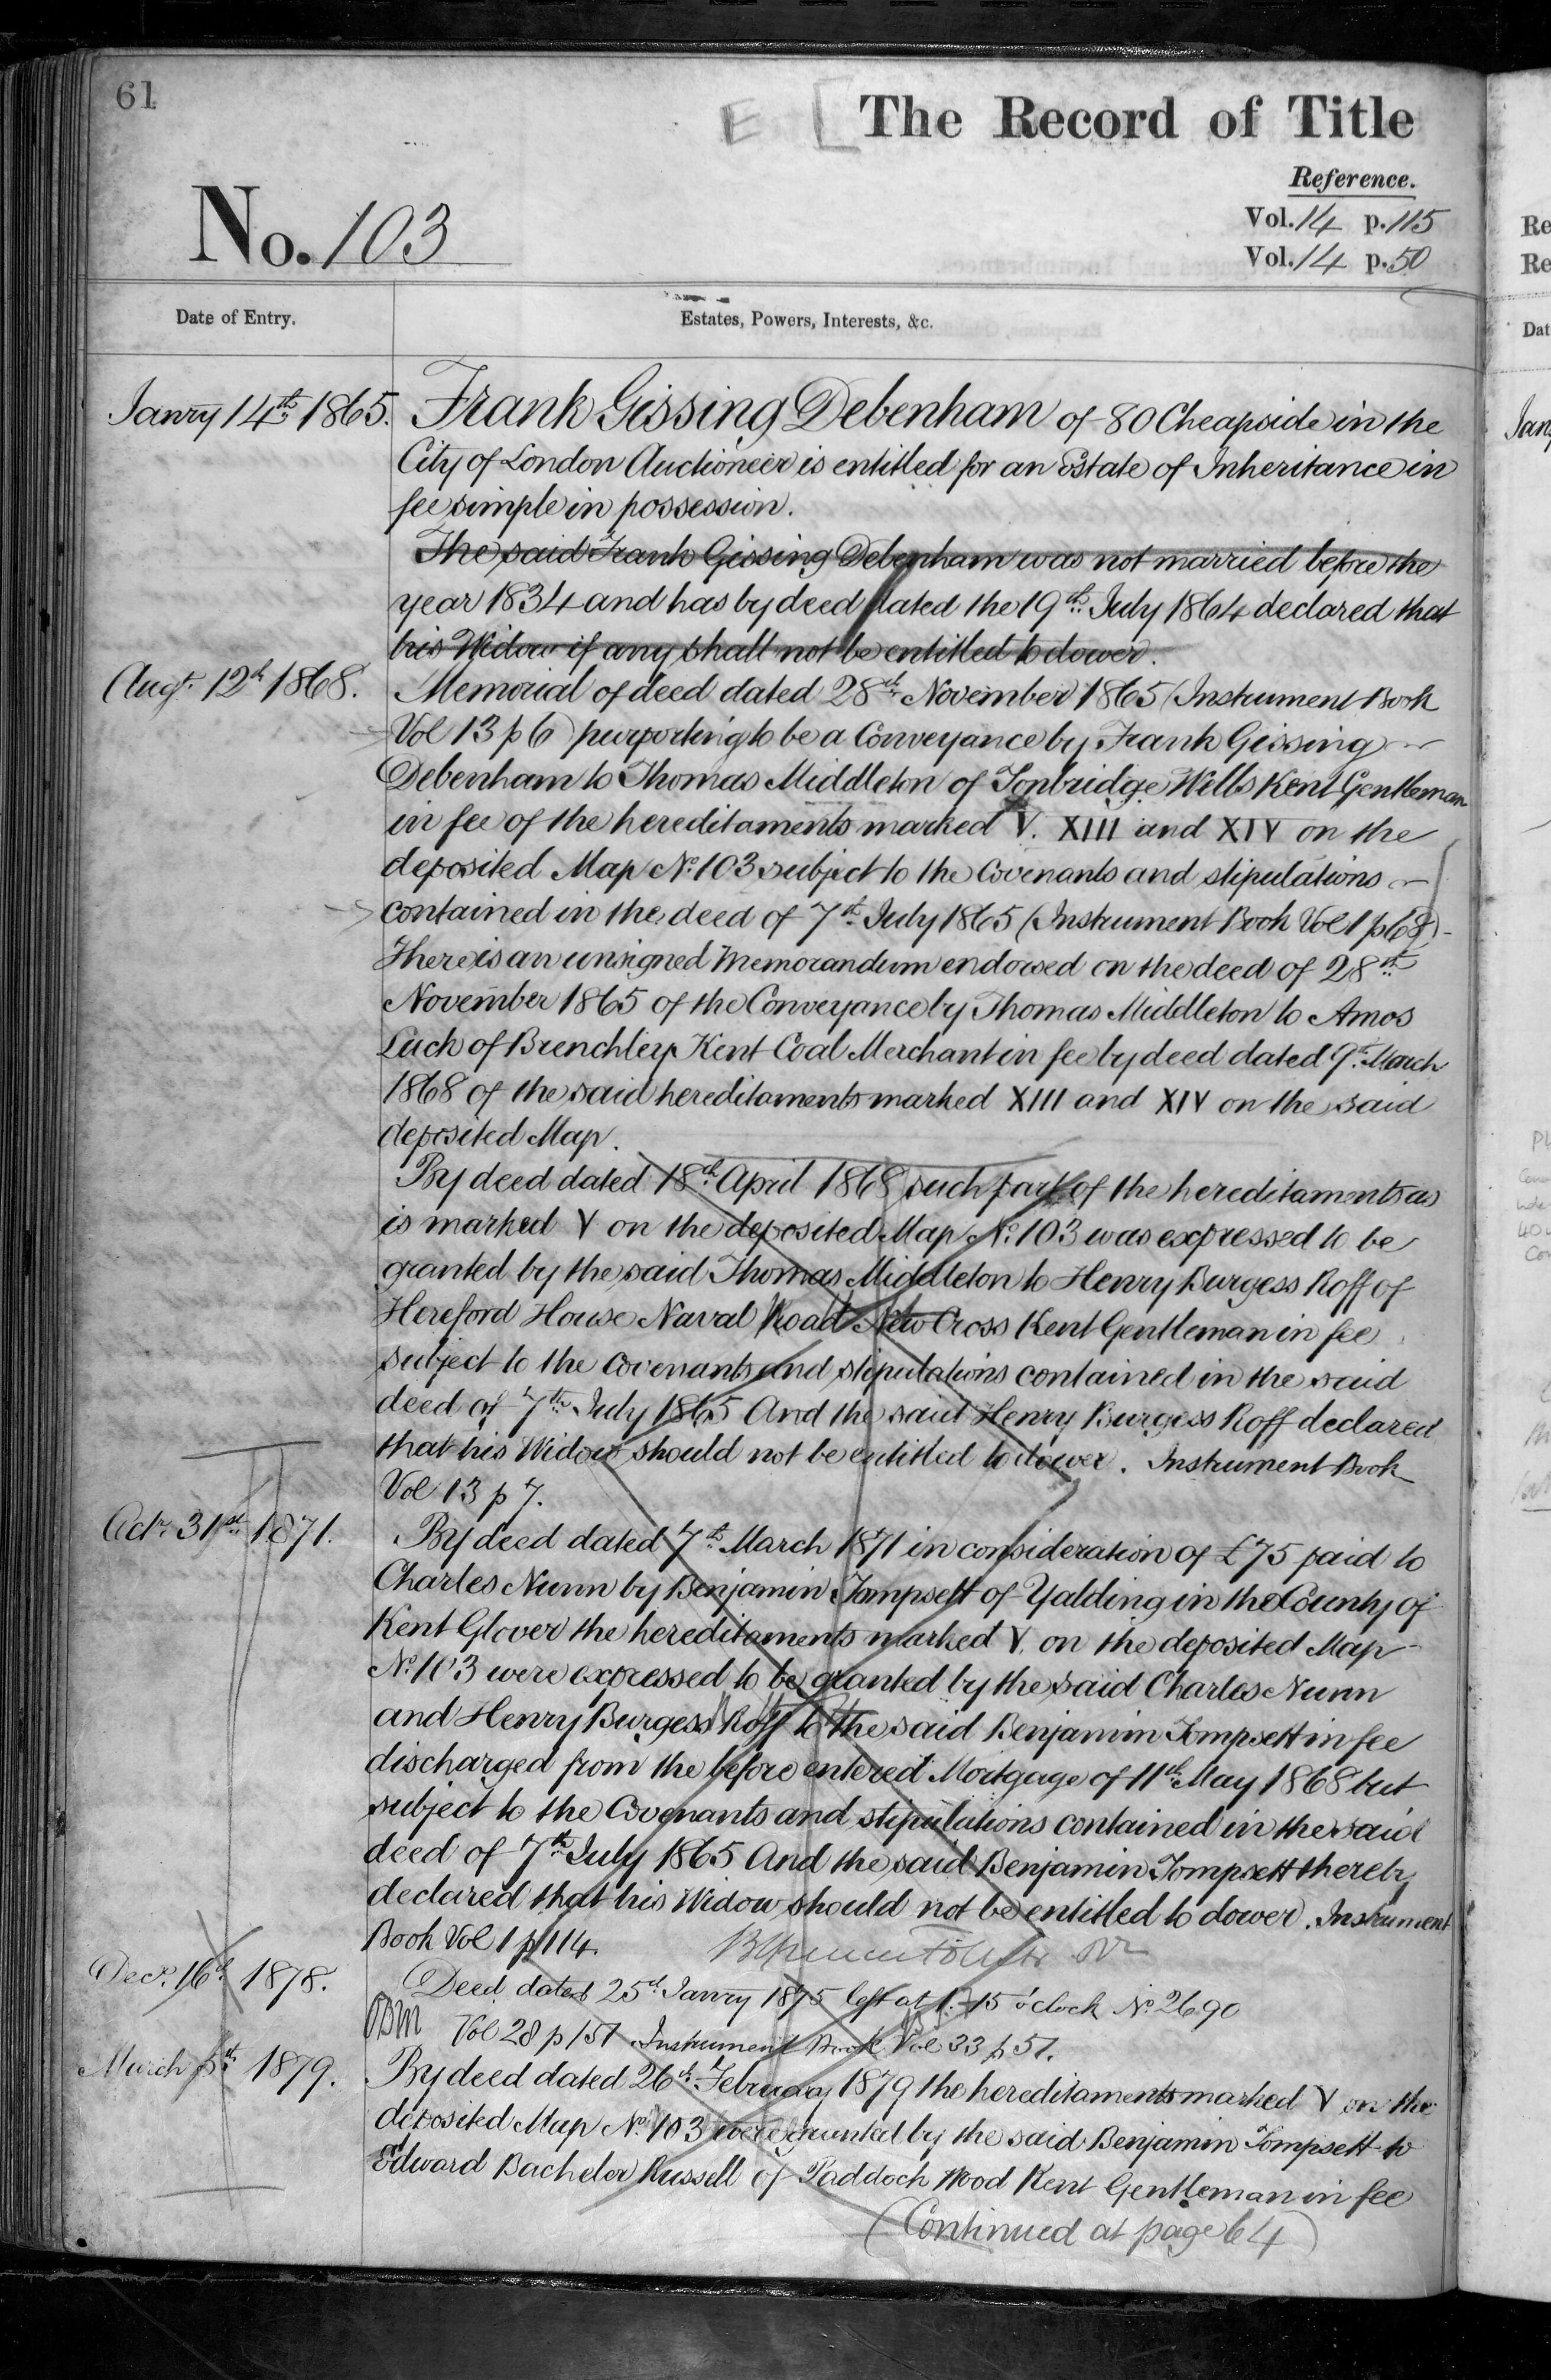 61
E [ The Record of Title
Reference.
No. 103
Vol. 14 p. 115
Vol. 14 p. 50
Date of Entry.
Estates, Powers, Interests, &c.
Janry 14th 1865. Frank Gissing Debenham of 80 Cheapside in the
City of London Auctioneer is entitled for an Estate of Inheritance in
fee simple in possession.
The said Frank Gissing Debenham was not married before the
year 1834 and has by deed dated the 19th July 1864 declared that
his Widow if any shall not be entitled to dower.
Augt. 12th 1868. Memorial of deed dated 28th November 1865 (Instrument Book
Vol 13 p 6) purporting to be a Conveyance by Frank Gissing
Debenham to Thomas Middleton of Tonbridge Wells Kent Gentleman
in fee of the hereditaments marked V. XIII and XIV on the
deposited Map No. 103 subject to the Covenants and stipulations
contained in the deed of 7th July 1865 (Instrument Book Vol 1 p 68)
There is an unsigned Memorandum endorsed on the deed of 28th
November 1865 of the Conveyance by Thomas Middleton to Amos
Luck of Brenchley Kent Coal Merchant in fee by deed dated 9th March
1868 of the said hereditaments marked XIII and XIV on the said
deposited Map.
By deed dated 18th April 1868 such part of the hereditaments as
is marked V on the deposited Map No. 103 was expressed to be
granted by the said Thomas Middleton to Henry Burgess Roff of
Hereford House Naval Road New Cross Kent Gentleman in fee
subject to the Covenants and stipulations contained in the said
deed of 7th July 1865 And the said Henry Burgess Roff declared
that his Widow should not be entitled to dower. Instrument Book
Vol 13 p 7.
Octr. 31st 1871. By deed dated 7th March 1871 in consideration of £75 paid to
Charles Nunn by Benjamin Tompsett of Yalding in the County of
Kent Glover the hereditaments marked V. on the deposited Map
No. 103 were expressed to be granted by the said Charles Nunn
and Henry Burgess Roff to the said Benjamin Tompsett in fee
discharged from the before entered Mortgage of 11th May 1868 but
subject to the Covenants and stipulations contained in the said
deed of 7th July 1865 And the said Benjamin Tompsett thereby
declared that his Widow should not be entitled to dower. Instrument
Book Vol 1 p 114.
Decr. 16th 1878. Deed dated 25th Janry 1875 left at 1.-15 o'clock No. 2690
Vol 28 p 151 Instrument Book Vol 33 p 51.
March 5th 1879. By deed dated 26th February 1879 the hereditaments marked V on the
deposited Map No. 103 were granted by the said Benjamin Tompsett to
Edward Bachelor Russell of Paddock Wood Kent Gentleman in fee
(Continued at page 64)
Re
Re
Dat
Jan